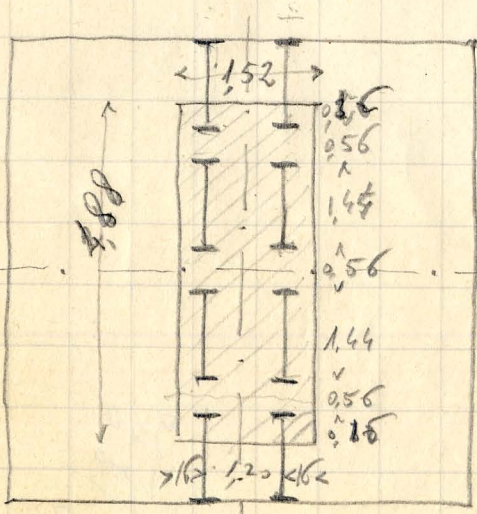 1,52
0,16
0,56
1,44
4,88
0,56
1,44
0,56
0,16
>16< 1,20 <16<